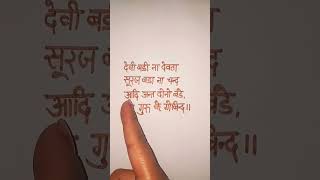 देवी बडी ना देवता
सूरज बडा ना चन्द
आदि अन्त दोनो बडे,
गुरू गोविन्द॥